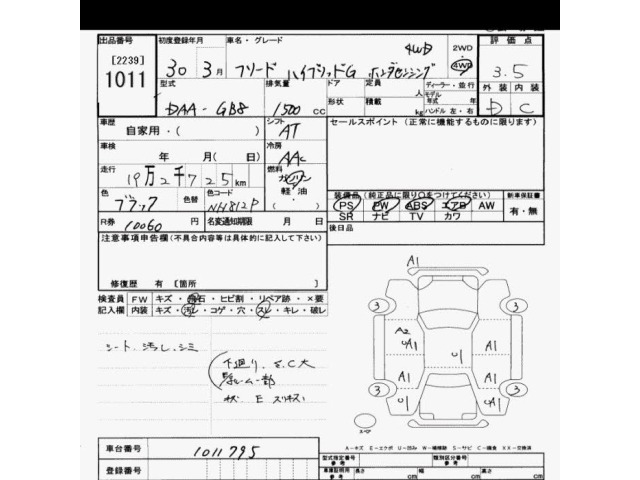 出品番号 初度登録年月 車名・グレード 4WD 2WD・4WD 評価点
[2239]
1011 30年3月 フリード ハイブリッドG ホンダセンシング 3.5
型式 排気量 ドア 定員 人 ディーラー・並行 外装 内装
DAA-GB8 1500cc 形状 積載 kg モデル 年式 年 ハンドル 左・右 D C
車歴 自家用・( ) シフト AT セールスポイント (正常に機能するものに限ります)
車検 年 月(日) 冷房 AAC
走行 19万2千725km 燃料 ガソリン 軽・油
装備品(純正品に限り○をつけてください) 新車保証書
色 ブラック 色替 色コード NH812P PS PW ABS エアB AW 有・無
SR ナビ TV カワ
R券 10060 名変通知期限 月 日 後日品
注意事項申告欄(不具合内容等は具体的に記入して下さい)
A1
修復歴 有 [箇所
検査員 FW キズ・飛石・ヒビ割・リペア跡・×要 3 3
記入欄 内装 キズ・汚レ・コゲ・穴・スレ・キレ・破レ
A2
A1 U A1
シート、汚レ、シミ
下廻り、S、C大
A1 A1
3 3
U A1
A1
スペア
A-キズ E-エクボ U-凹み W-補修跡 S-サビ C-腐食 XX-交換済
車台番号 1011795 型式指定番号 参考 類別区分番号 参考
登録番号 車庫証明用 参考 長さ cm 幅 cm 高さ cm